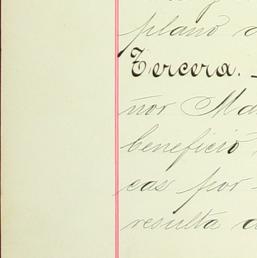 plano d
Tercera. _
ñor Ma
beneficio
cas por
resulta d